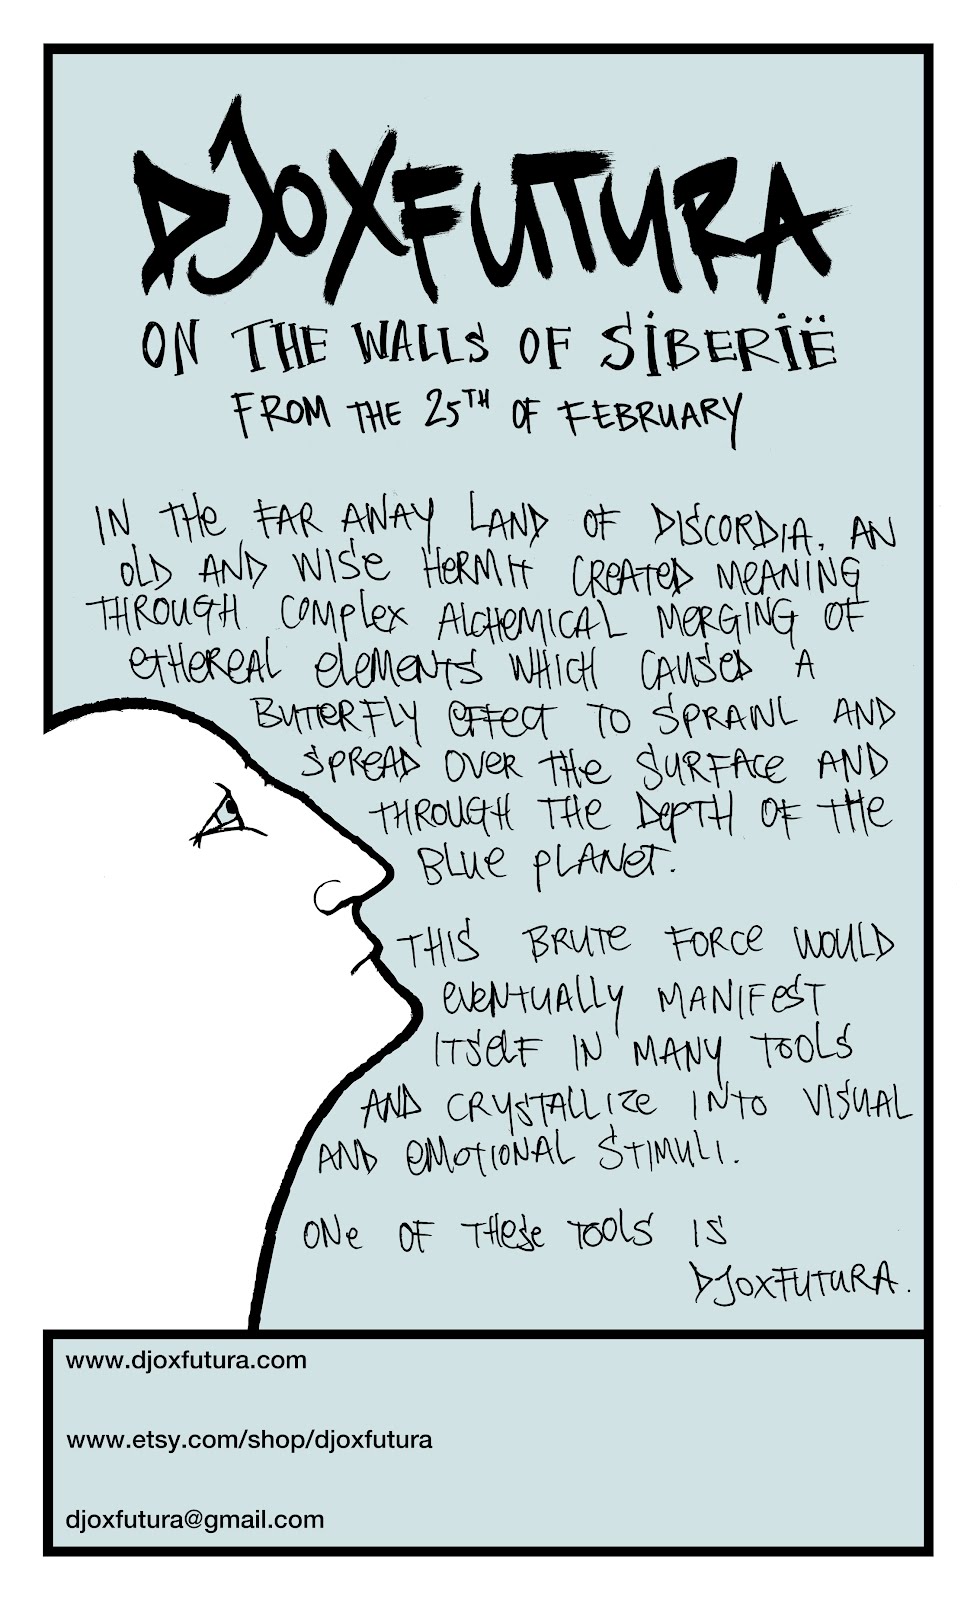 DJOXFUTURA
ON THE WALLS OF SIBERIË
FROM THE 25TH OF FEBRUARY
IN THE FAR AWAY LAND OF DISCORDIA, AN
OLD AND WISE HERMIT CREATED MEANING
THROUGH COMPLEX ALCHEMICAL MERGING OF
ETHEREAL ELEMENTS WHICH CAUSED A
BUTTERFLY EFFECT TO SPRAWL AND
SPREAD OVER THE SURFACE AND
THROUGH THE DEPTH OF THE
BLUE PLANET.
THIS BRUTE FORCE WOULD
EVENTUALLY MANIFEST
ITSELF IN MANY TOOLS
AND CRYSTALLIZE INTO VISUAL
AND EMOTIONAL STIMULI.
ONE OF THESE TOOLS IS
DJOXFUTURA.
www.djoxfutura.com
www.etsy.com/shop/djoxfutura
djoxfutura@gmail.com